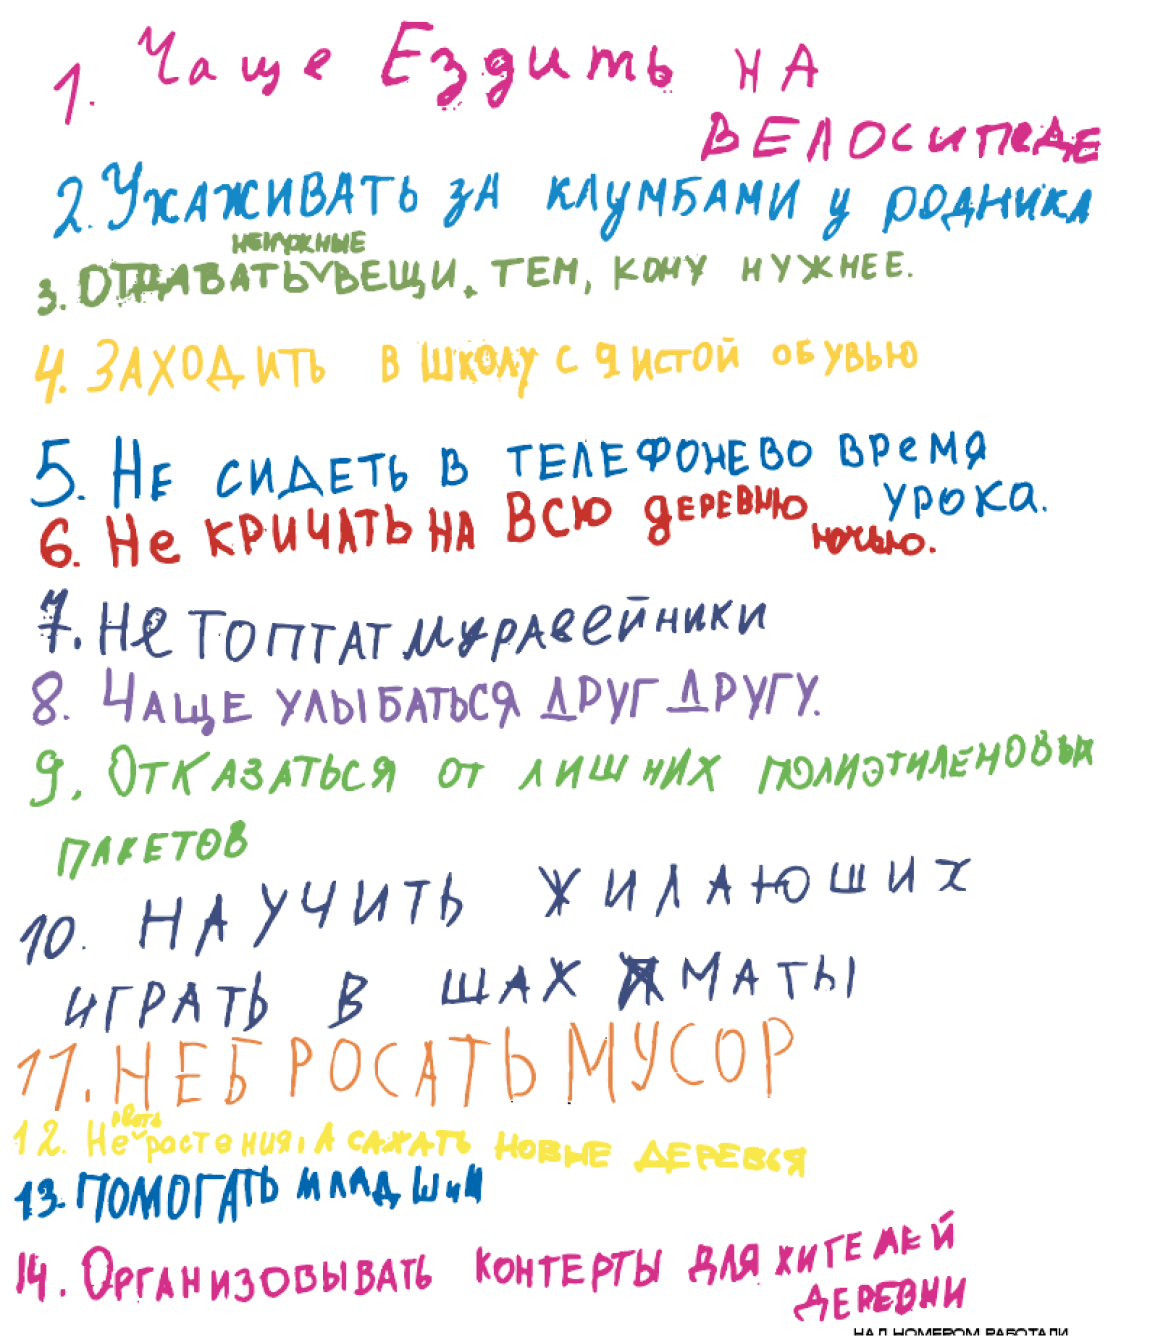 1. Чаще Ездить на
велосипеде
2. Ухаживать за клумбами у родника
ненужные
3. Отдавать вещи, тем, кому нужнее.
4. Заходить в школу с чистой обувью
5. Не сидеть в телефоне во время
урока.
6. Не кричать на всю деревню
ночью.
7. Не топтат муравейники
8. Чаще улыбаться друг другу.
9. Отказаться от лишних полиэтиленовых
пакетов
10. Научить жилаюших
играть в шах маты
11. Не бросать мусор
рвать
12. Не растения, а сажать новые деревья
13. Помогать младшим
14. Организовывать контерты для жителей
деревни
НАД НОМЕРОМ РАБОТАЛИ